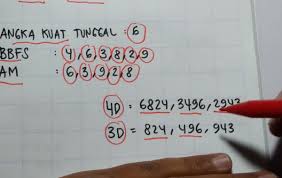 ANGKA KUAT TUNGGAL : 6
BBFS : 4,6,3,8,2,9
AM : 6,3,9,2,8
4D = 6824, 3496, 2943
3D = 824, 496, 943